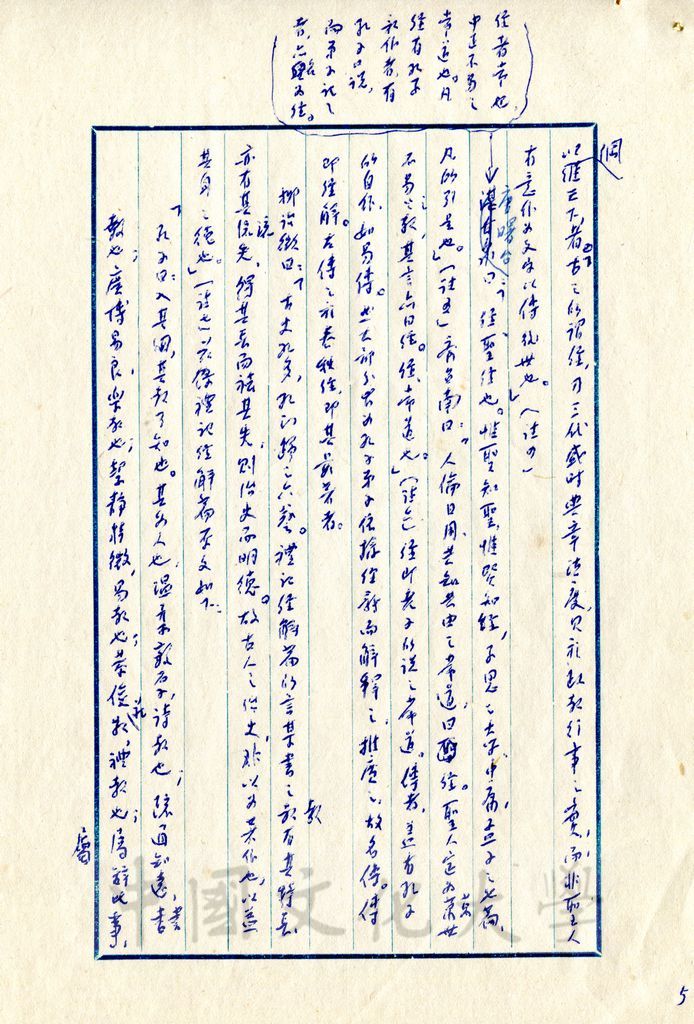 經者常也
中正不易之
常道也。凡
經有孔子
所作者，有
孔子口說，
而弟子記之
者，亦名為經。
綱
以維天下者也。古之所謂經，乃三代盛時典章法度，見於政教行事之實，而非聖人
有意作為文字以傳後世也。」（註四）
唐曙台曰：「經，聖經也。惟聖知聖，惟賢知經，子思之大學中庸，孟子之七篇，
凡所引是也。」（註五）章台南曰：「人倫日用，共知共由之常道曰經。聖人定為萬世
不易之教，其言亦曰經。經，常道也。」（註六）經即老子所說之常道。傳者，並有孔子
所自作，如易傳。其大部分皆為孔子弟子依據經辭而解釋之，推廣之，故名傳。傳
即經解。左傳之於春秋經，即其最著者。
柳詒徵曰：「古史孔多，孔訂歸之六藝。禮記經解篇所言某書之教有其特長，
亦有其流失，得其長而祛其失，則治史而明德。故古人之作史，非以為其作也，以益
其身之德也。」（註七）茲錄禮記經解篇原文如下：
「孔子曰：入其國，其教可知也。其為人也，溫柔敦厚，詩教也；疏通知遠，書
教也；廣博易良，樂教也；絜靜精微，易教也；恭儉莊敬，禮教也；屬辭比事，
中國文化大學
5